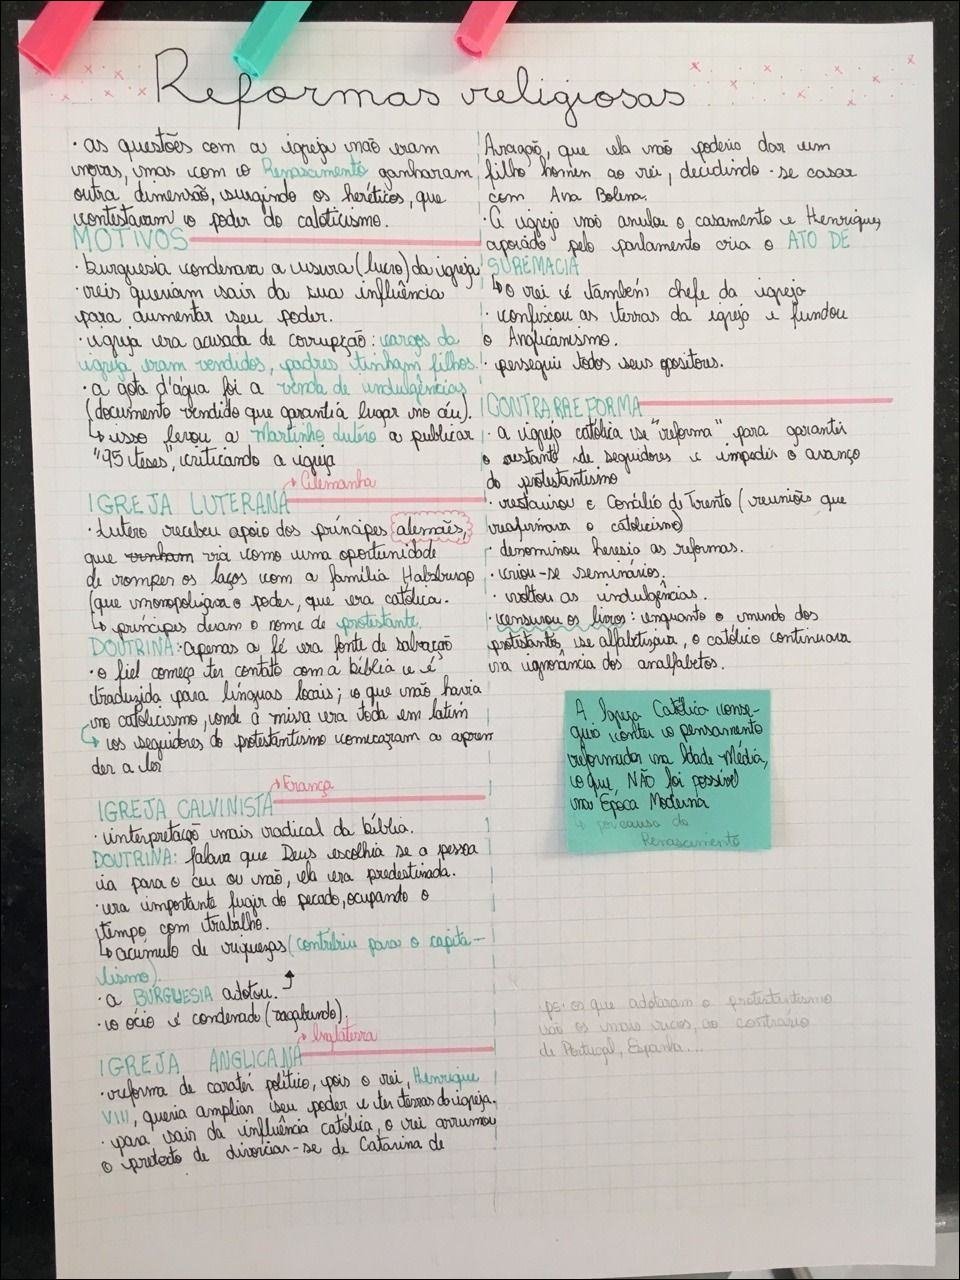 Reformas religiosas
· as questões com a igreja não eram
novas, mas com o Renascimento ganharam
outra dimensão, surgindo os heréticos, que
contestavam o poder do catoticismo.
MOTIVOS
· burguesia condenava a usura (lucro) da igreja
· reis queriam sair da sua influência
para aumentar seu poder.
· igreja era acusada de corrupção: cargos da
igreja eram vendidos, padres tinham filhos.
· a gota d'água foi a venda de indulgências
(documento vendido que garantia lugar no céu).
↳ isso levou a Martinho Lutero a publicar
"95 teses", criticando a igreja
→ Alemanha
IGREJA LUTERANA
· Lutero recebeu apoio dos príncipes alemães,
que tinham via como uma oportunidade
de romper os laços com a família Habsburgo
(que monopolizava o poder, que era católica.
↳ príncipes deram o nome de protestante.
DOUTRINA: apenas a fé era fonte de salvação
· o fiel começa ter contato com a bíblia e é
traduzida para línguas locais; o que não havia
no catolicismo, onde a missa era toda em latim
↳ os seguidores do protestantismo começaram a apren
der a ler
→ França
IGREJA CALVINISTA
· interpretação mais radical da bíblia.
DOUTRINA: falava que Deus escolhia se a pessoa
ia para o céu ou não, ela era predestinada.
· era importante fugir do pecado, ocupando o
tempo com trabalho.
↳ acúmulo de riquezas (contribiu para o capita-
lismo).
· a BURGUESIA adotou.
· o ócio é condenado (vagabundo).
→ Inglaterra
IGREJA ANGLICANA
· reforma de caratér político, pois o rei, Henrique
VIII, queria ampliar seu poder e ter terras da igreja.
· para sair da influência católica, o rei arrumou
o pretexto de divorciar-se de Catarina de
Aragão, que ela não poderia dar um
filho homen ao rei, decidindo-se casar
com Ana Bolena.
· A igreja não anulou o casamento e Henrique,
apoiado pelo parlamento cria o ATO DE
SUREMACIA
↳ o rei é também chefe da igreja
· confiscou as terras da igreja e fundou
o Anglicanismo.
· perseguiu todos seus opositores.
CONTRARREFORMA
· a igreja católica se "reforma" para garantir
o restante de seguidores e impedir o avanço
do protestantismo
· restaurou o Concílio de Trento (reuniões que
reafirmava o catolicismo)
· denominou heresia as reformas.
· criou-se seminários.
· voltou as indulgências.
· censurou os livros: enquanto o mundo dos
protestantes, se alfabetizava, o católico continuava
na ignorância dos analfabetos.
A Igreja Católica conse-
guiu conter o pensamento
reformador na Idade Média,
o que, NÃO foi possível
na Época Moderna
↳ por causa do
Renascimento
ps: os que adotaram o protestantismo
são os mais ricos, ao contrário
de Portugal, Espanha...